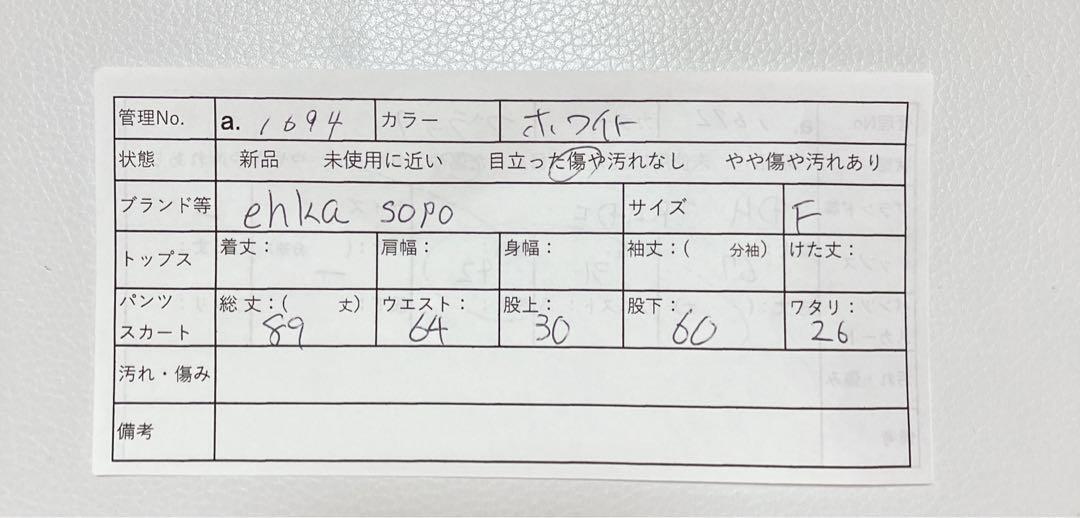 管理No. a. 1694 カラー ホワイト
状態 新品 未使用に近い 目立った傷や汚れなし やや傷や汚れあり
ブランド等 ehka sopo サイズ F
トップス 着丈： 肩幅： 身幅： 袖丈：( 分袖) けた丈：
パンツ 総丈：( 丈) ウエスト： 股上： 股下： ワタリ：
スカート 89 64 30 60 26
汚れ・傷み
備考